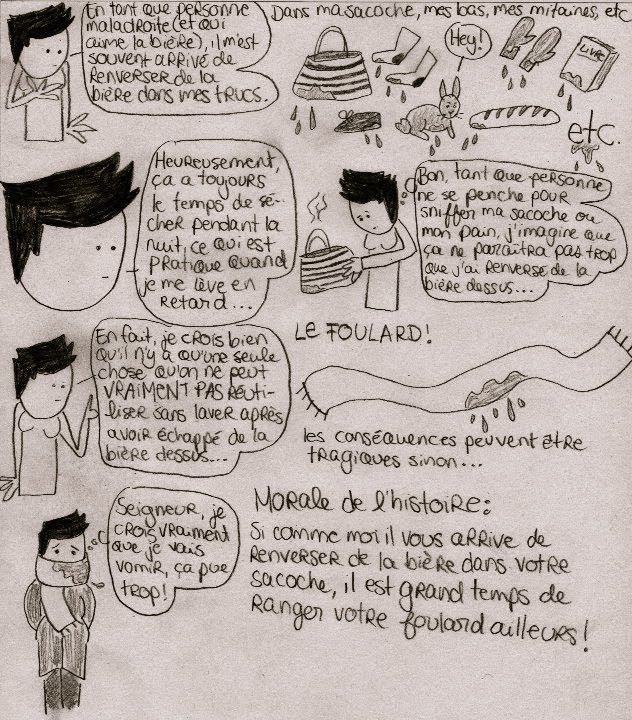 En tant que personne
maladroite (et qui
aime la bière), il m'est
souvent arrivé de
renverser de la
bière dans mes trucs.
Dans ma sacoche, mes bas, mes mitaines, etc
Hey!
LIVRE
etc.
Heureusement,
ça a toujours
le temps de sé-
cher pendant la
nuit, ce qui est
pratique quand
je me lève en
retard...
Bon, tant que personne
ne se penche pour
sniffer ma sacoche ou
mon pain, j'imagine que
ça ne paraîtra pas trop
que j'ai renversé de la
bière dessus...
En fait, je crois bien
qu'il n'y a qu'une seule
chose qu'on ne peut
VRAIMENT PAS réuti-
liser sans laver après
avoir échappé de la
bière dessus...
LE FOULARD!
les conséquences peuvent être
tragiques sinon...
Seigneur, je
crois vraiment
que je vais
vomir, ça pue
trop!
Morale de l'histoire:
Si comme moi il vous arrive de
renverser de la bière dans votre
sacoche, il est grand temps de
ranger votre foulard ailleurs!